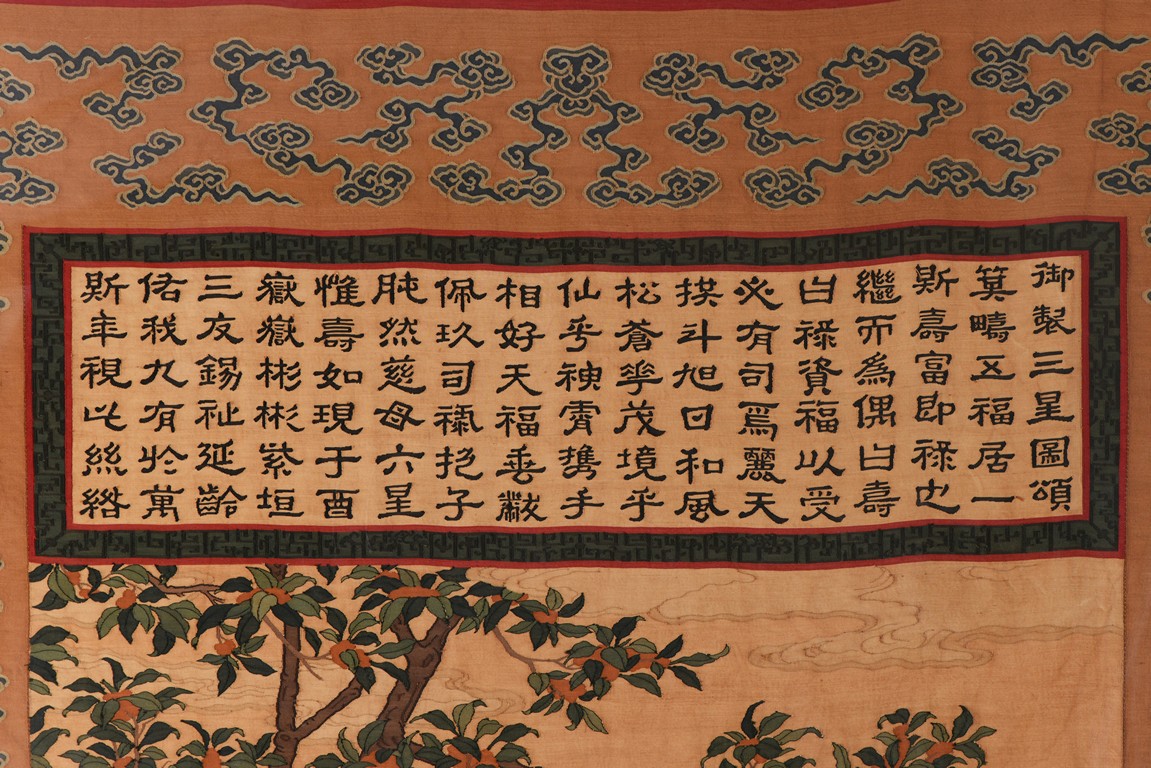 御製三星圖頌
箕疇五福居一
斯壽富即祿也
繼而為偶曰壽
曰祿資福以受
必有司焉麗天
拱斗旭日和風
松蒼華茂境乎
仙乎神霄攜手
相好天福垂黻
佩玖司祿抱子
肫然慈母六星
惟壽如現于酉
嶽嶽彬彬紫垣
三友錫祉延齡
佑我九有於萬
斯年視此絲綹